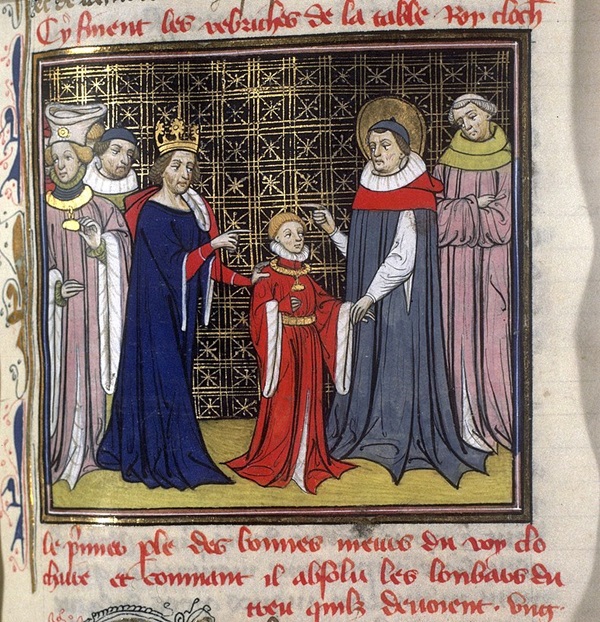 Cy finent les rebriches de la table Roy cloth
le p̃mier ple des bonnes meurs du roy clo
thaire et comment il absolu les lonbars du
treu quilz devoient. vng.